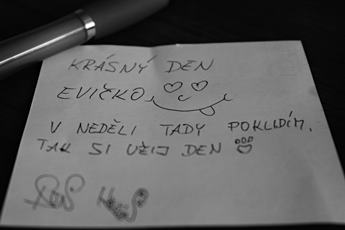 KRÁSNÝ DEN
EVIČKO
V NEDĚLI TADY POKLIDÍM.
TAK SI UŽIJ DEN